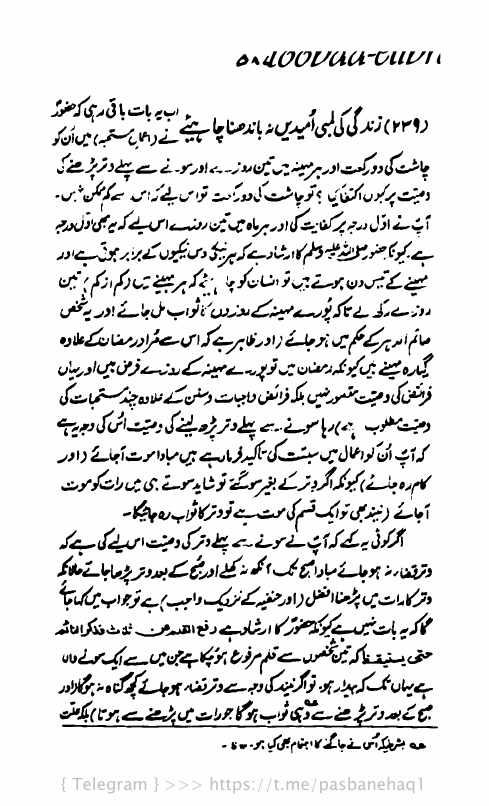 (۲۳۹) زندگی کی لمبی اُمیدیں نہ باندھنا چاہئیے اب یہ بات باقی رہی کہ حضورؐ
نے (اعمال مستحبہ) میں اُن کو
چاشت کی دو رکعت اور ہر مہینہ میں تین روزے اور سونے سے پہلے وتر پڑھنے کی
وصیّت پر کیوں اکتفا کیا ؟ تو چاشت کی دو رکعت تو اس لیے کہ اس سے کم ممکن نہیں۔
آپؐ نے اوّل درجہ پر کفایت کی اور ہر ماہ میں تین روزے اس لیے کہ یہ بھی اوّل درجہ
ہے کیونکہ حضور صلی اللہ علیہ وسلم کا ارشاد ہے کہ ہر نیکی دس نیکیوں کے برابر ہوتی ہے اور
مہینے کے تیس دن ہوتے ہیں تو انسان کو چاہیئے کہ ہر مہینے میں (کم از کم) تین
روزے رکھ لے تاکہ پورے مہینہ کے روزوں کا ثواب مل جائے اور یہ شخص
صائم الدہر کے حکم میں ہو جائے (اور ظاہر ہے کہ اس سے مُراد رمضان کے علاوہ
گیارہ مہینے ہیں کیونکہ رمضان میں تو پورے مہینہ کے روزے فرض ہیں اور یہاں
فرائض کی وصیّت مقصود نہیں بلکہ فرائض واجبات و سنن کے علاوہ چند مستحبات کی
وصیت مطلوب ہے) رہا سونے سے پہلے وتر پڑھ لینے کی وصیت اس کی وجہ یہ ہے
کہ آپؐ اُن کو اعمال میں سبقت کی تاکید فرما رہے ہیں مبادا موت آجائے (اور
کام رہ جائے) کیونکہ اگر وتر کے بغیر سو گئے تو شاید سوتے ہی میں رات کو موت
آجائے (نیند بھی تو ایک قسم کی موت ہے تو وتر کا ثواب رہ جائیگا۔
اگر کوئی یہ کہے کہ آپؐ نے سونے سے پہلے وتر کی وصیت اس لیے کی ہے کہ
وتر قضا نہ ہو جائے مبادا صبح تک آنکھ نہ کھلے اور صبح کے بعد وتر پڑھا جائے حالانکہ
وتر کا رات میں پڑھنا افضل (اور حنفیہ کے نزدیک واجب) ہے تو جواب میں کہا جائے
گا کہ یہ بات نہیں ہے کیونکہ حضورؐ کا ارشاد ہے رفع القلم عن ثلاث فذکر النائم
حتی یستیقظ کہ تین شخصوں سے قلم مرفوع ہو چکا ہے جن میں سے ایک سونے والا
ہے یہاں تک کہ بیدار ہو۔ تو اگر نیند کی وجہ سے وتر قضا ہو جائے کچھ گناہ نہ ہوگا اور
صبح کے بعد وتر پڑھنے سے وہی ثواب ہو گا جو رات میں پڑھنے سے ہوتا) بلکہ علّت
عہ بشرطیکہ اُس نے جاگنے کا اہتمام بھی کیا ہو۔
{ Telegram } >>> https://t.me/pasbanehaq1